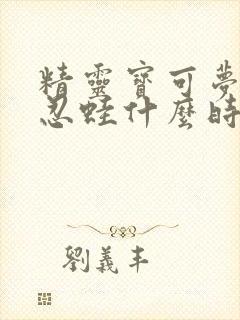 精靈寶可夢
忍蛙什麼時
劉義丰